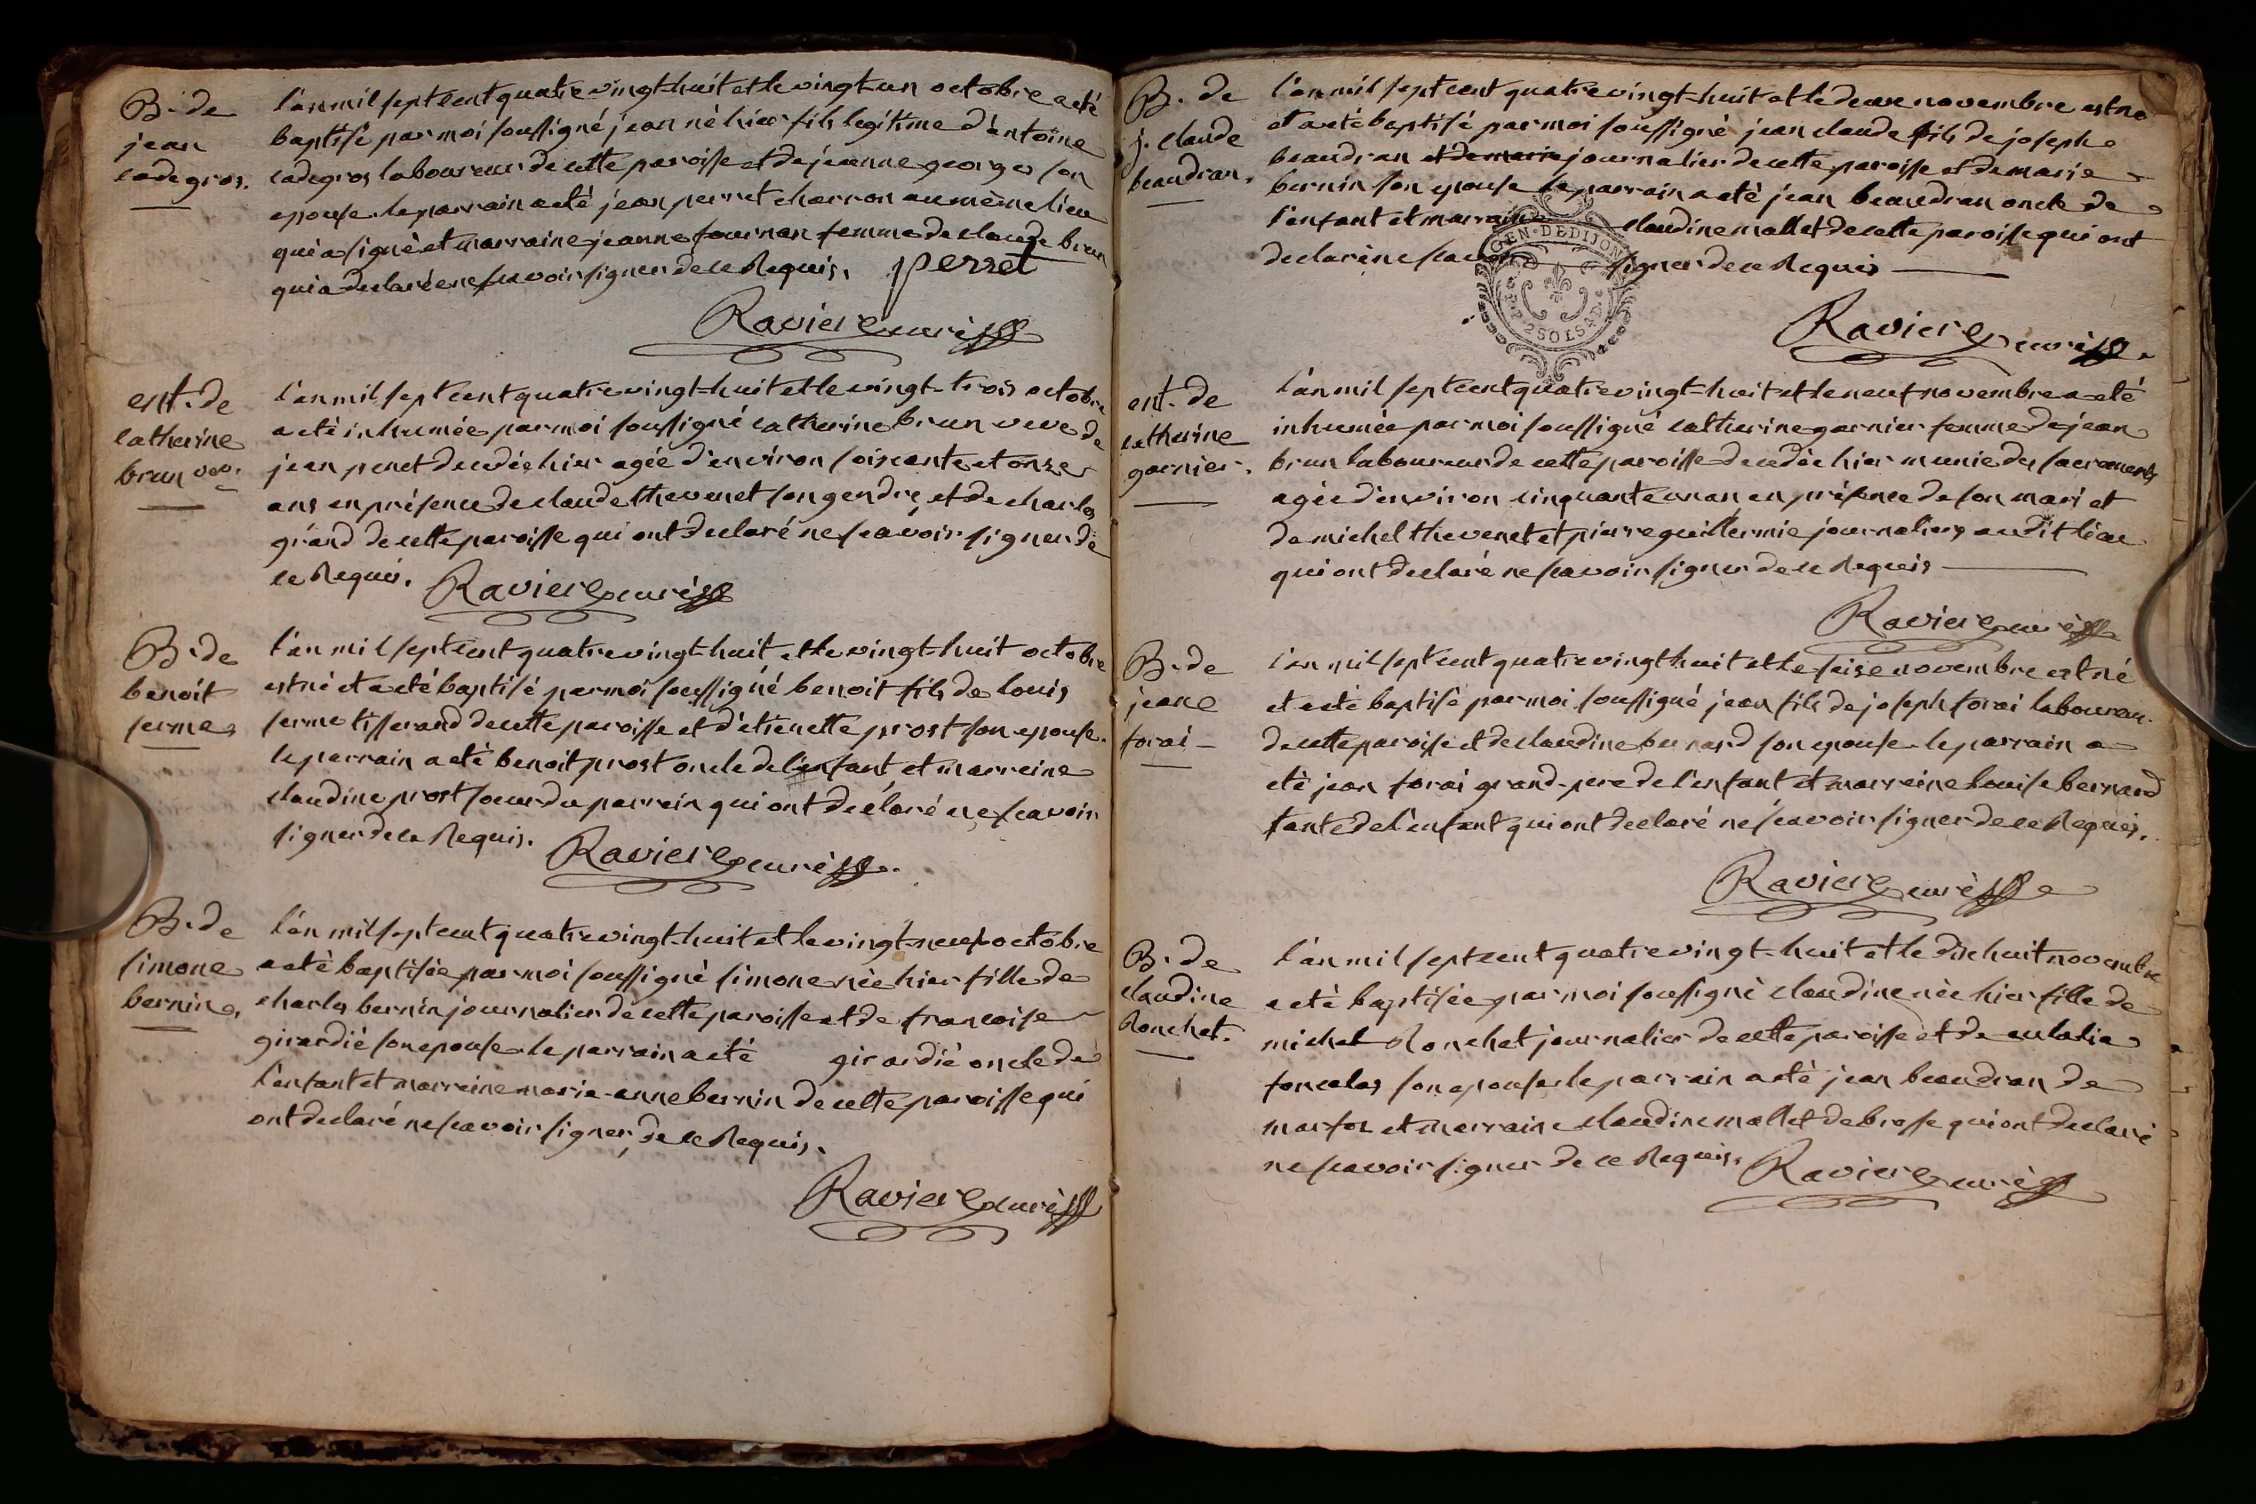 B. de
jean
cadegros.
l'an mil sept cent quatre vingt-huit et le vingt-un octobre a eté
baptisé par moi soussigné jean né hier fils legitime d'antoine
cadegros laboureur de cette paroisse et de jeanne georges son
epouse. le parrain a eté jean perret charron au même lieu
qui a signé et marraine jeanne fournan femme de claude brun
qui a declaré ne scavoir signer de ce Requis.
jperret
Raviere curé
ent. de
catherine
brun vve.
l'an mil sept cent quatre vingt-huit et le vingt-trois octobre
a eté inhumée par moi soussigné catherine brun veve de
jean penet decedée hier agée d'environ soixante et onze
ans en présence de claude thevenet son gendre, et de charles
grand de cette paroisse qui ont declaré ne scavoir signer de
ce Requis.
Raviere curé
B. de
benoit
serme
l'an mil sept cent quatre vingt-huit et le vingt-huit octobre
est né et a eté baptisé par moi soussigné benoit fils de louis
serme tisserand de cette paroisse et d'etienette prost son epouse.
le parrain a eté benoit prost oncle de l'enfant et marreine
claudine prost soeur du parrein qui ont declaré ne scavoir
signer de ce Requis.
Raviere curé
B. de
simone
bernin.
l'an mil sept cent quatre vingt-huit et le vingt-neuf octobre
a eté baptisée par moi soussigné simone née hier fille de
charles bernin journalier de cette paroisse et de francoise
girardié son epouse. le parrain a eté girardié oncle de
l'enfant et marreine marie-anne bernin de cette paroisse qui
ont declaré ne scavoir signer, de ce Requis.
Raviere curé
B. de
j. claude
beaudran.
l'an mil sept cent quatre vingt-huit et le deux novembre est né
et a eté baptisé par moi soussigné jean claude fils de joseph
beaudran et de marie journalier de cette paroisse et de marie
bernin son epouse le parrain a eté jean beaudran oncle de
l'enfant et marraine claudine mallet de cette paroisse qui ont
declaré ne scavoir signer de ce Requis
GEN. DE DIJON
2 SOLS
Raviere curé
ent. de
catherine
garnier.
l'an mil sept cent quatre vingt-huit et le neuf novembre a eté
inhumée par moi soussigné catherine garnier femme de jean
brun laboureur de cette paroisse decedée hier munie des sacrements
agée d'environ cinquante un an en présence de son mari et
de michel thevenet et pierre guillermie journaliers audit lieu
qui ont declaré ne scavoir signer de ce Requis
Raviere curé
B. de
jean
forai
l'an mil sept cent quatre vingt huit et le seise novembre est né
et a eté baptisé par moi soussigné jean fils de joseph forai laboureur
de cette paroisse et de claudine bernard son epouse. le parrain a
eté jean forai grand-pere de l'enfant et marreine louise bernard
tante de l'enfant qui ont declaré ne scavoir signer de ce Requis.
Raviere curé
B. de
claudine
Ronchet.
l'an mil sept cent quatre vingt-huit et le dix huit novembre
a eté baptisée par moi soussigné claudine née hier fille de
michel Ronchet journalier de cette paroisse et de eulalie
foncelas son epouse le parrain a eté jean beaudran de
marfos et marraine claudine mallet de brosse qui ont declaré
ne scavoir signer de ce Requis.
Raviere curé